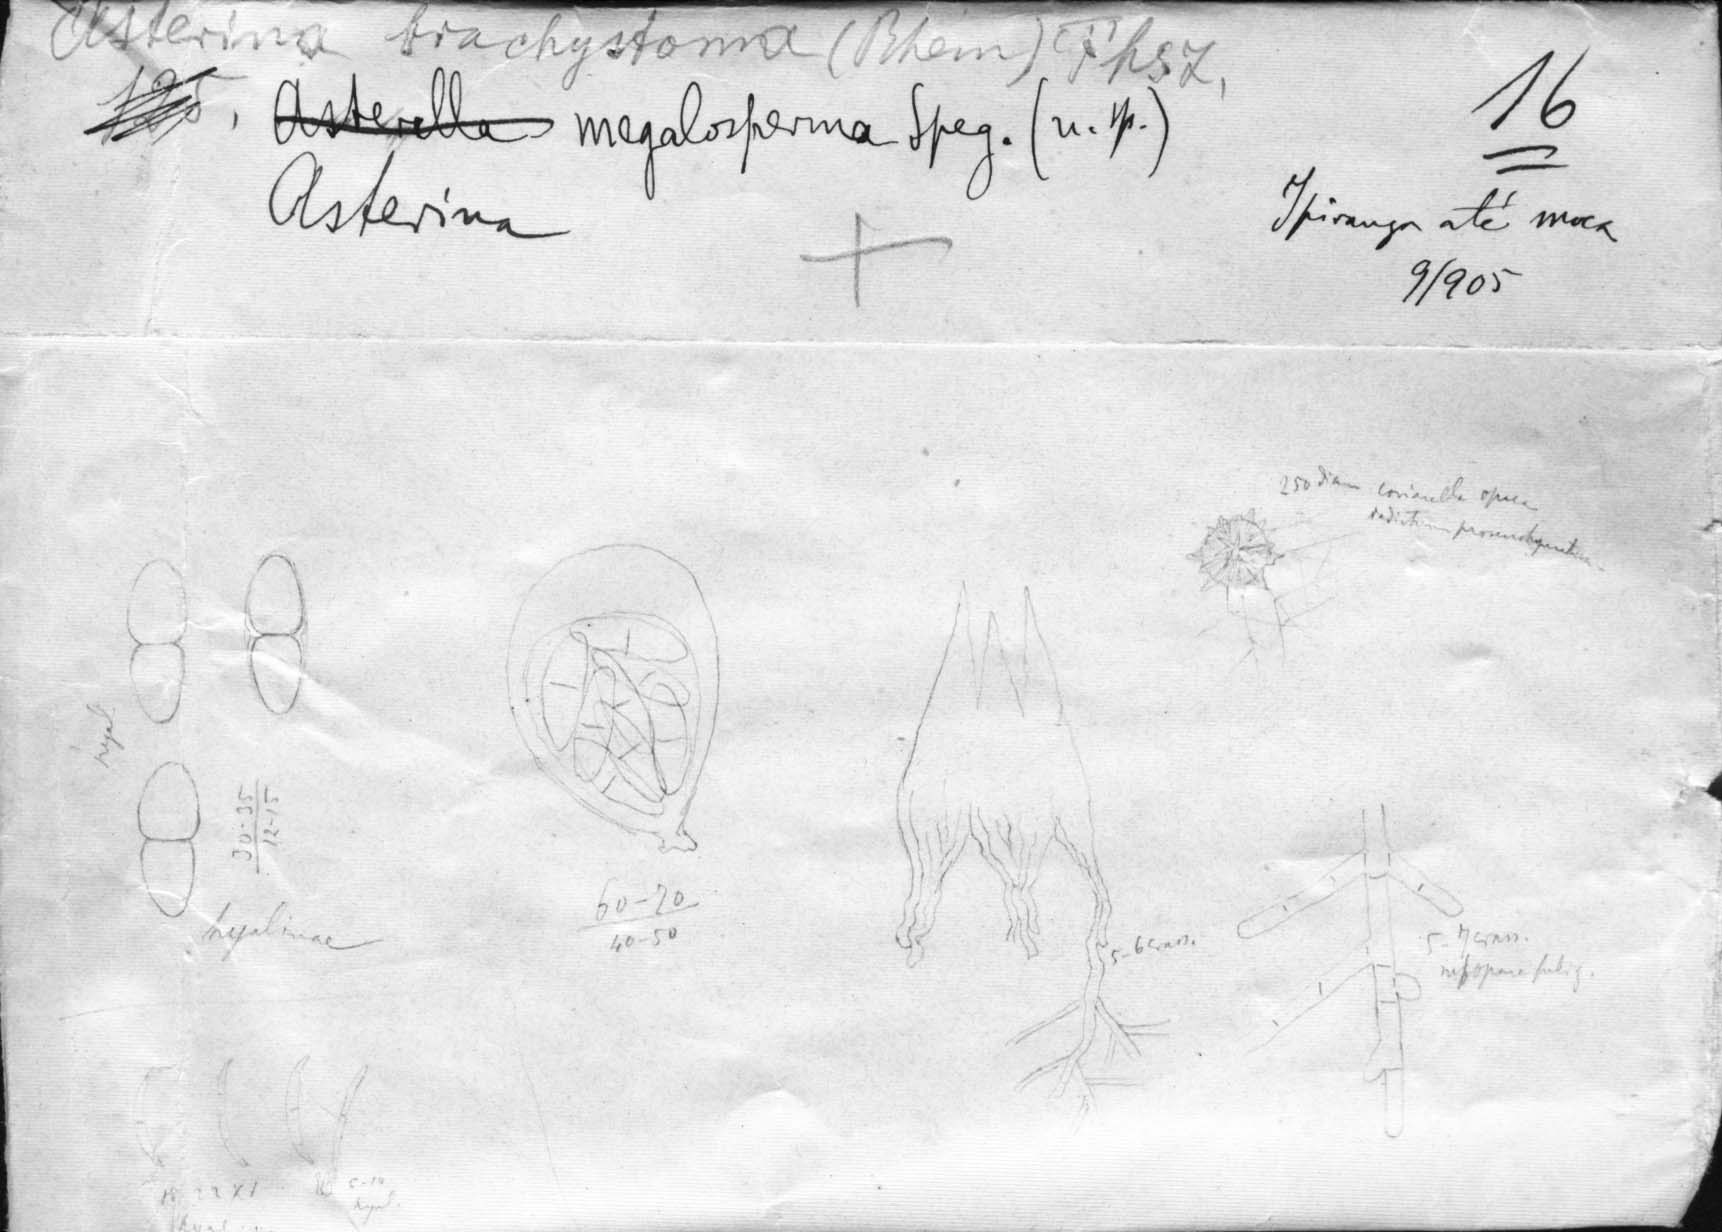 Asterina brachystoma (Rhem)
Asterella megalosperma Speg. (n. sp.)
Asterina
16
Ipiranga até moca
9/905
250 diam opaca
hyal
30-35
12-15
hyalinae
60-70
40-50
5-6 crass.
5-7 crass.
22 x 1
5-10
hyal.